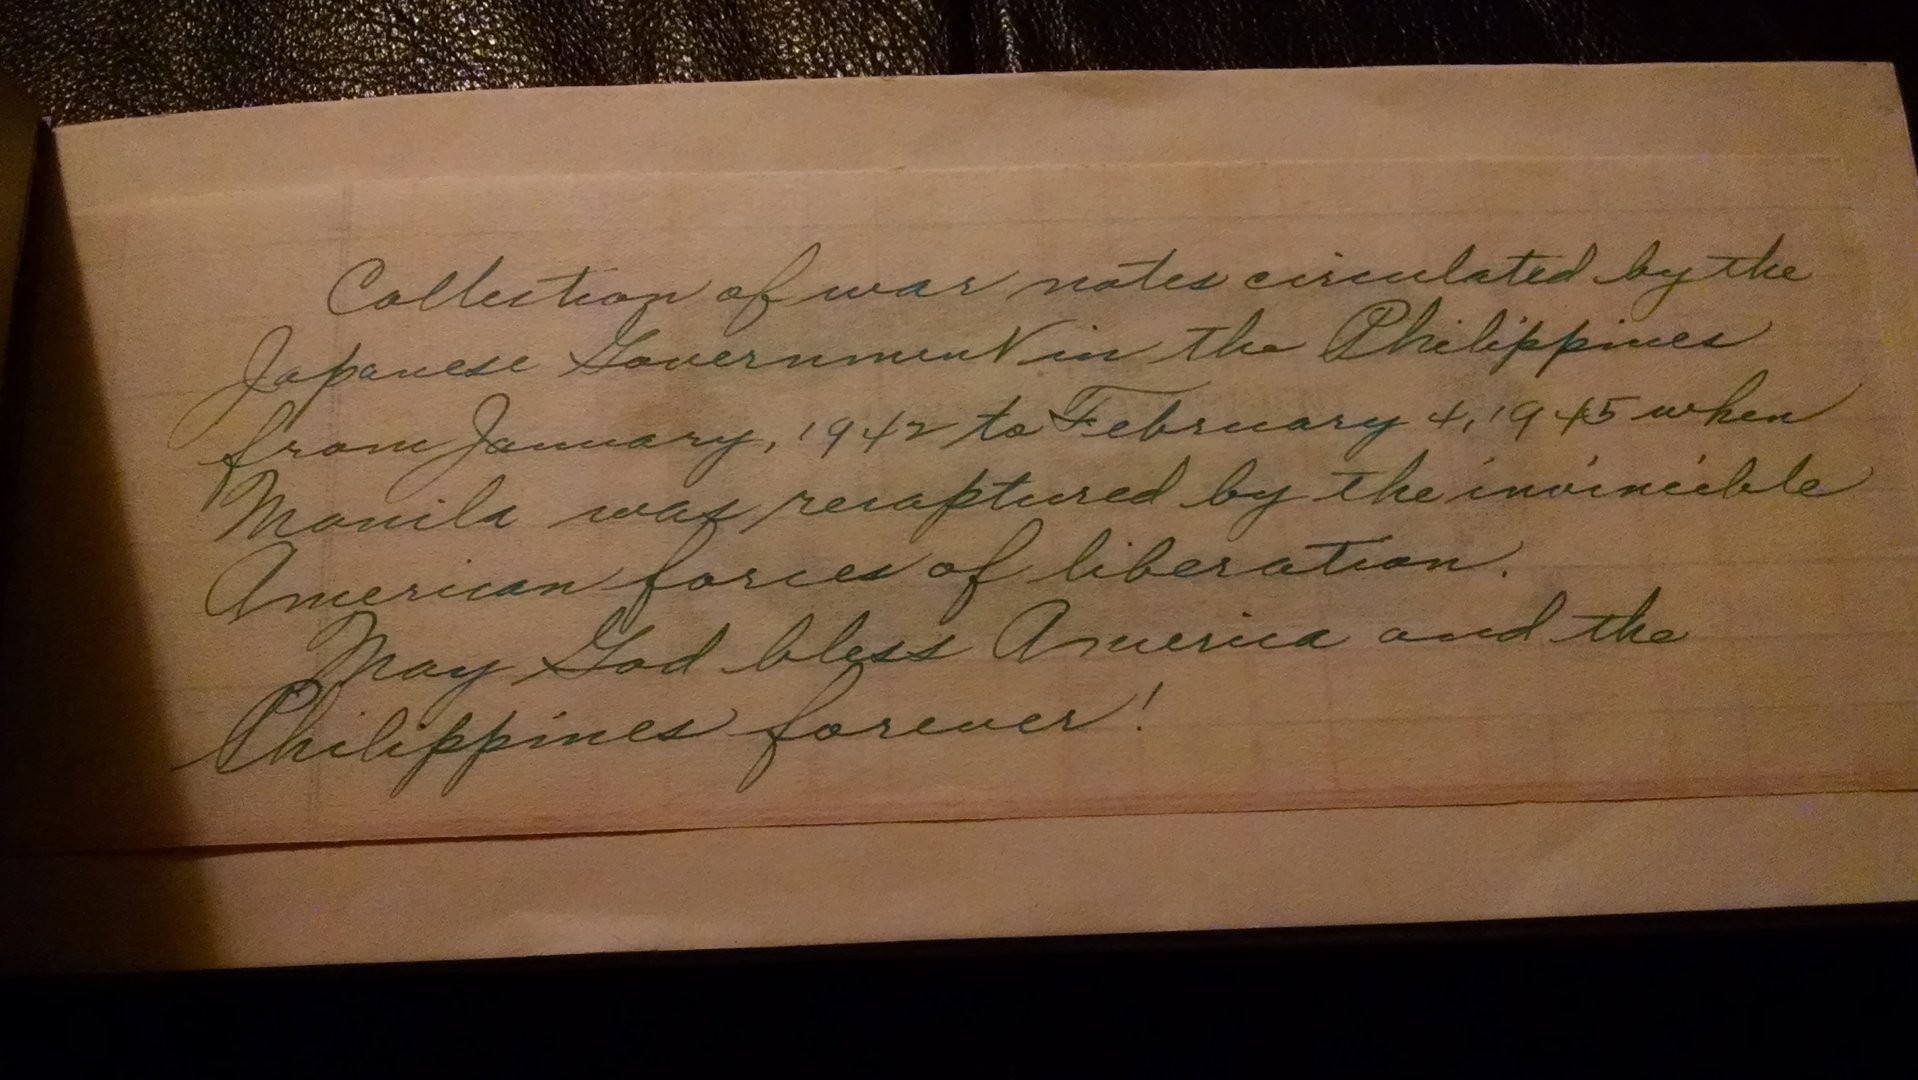 Collection of war notes circulated by the
Japanese Government in the Philippines
from January, 1942 to February 4, 1945 when
Manila was recaptured by the invincible
American forces of liberation.
May God bless America and the
Philippines forever!